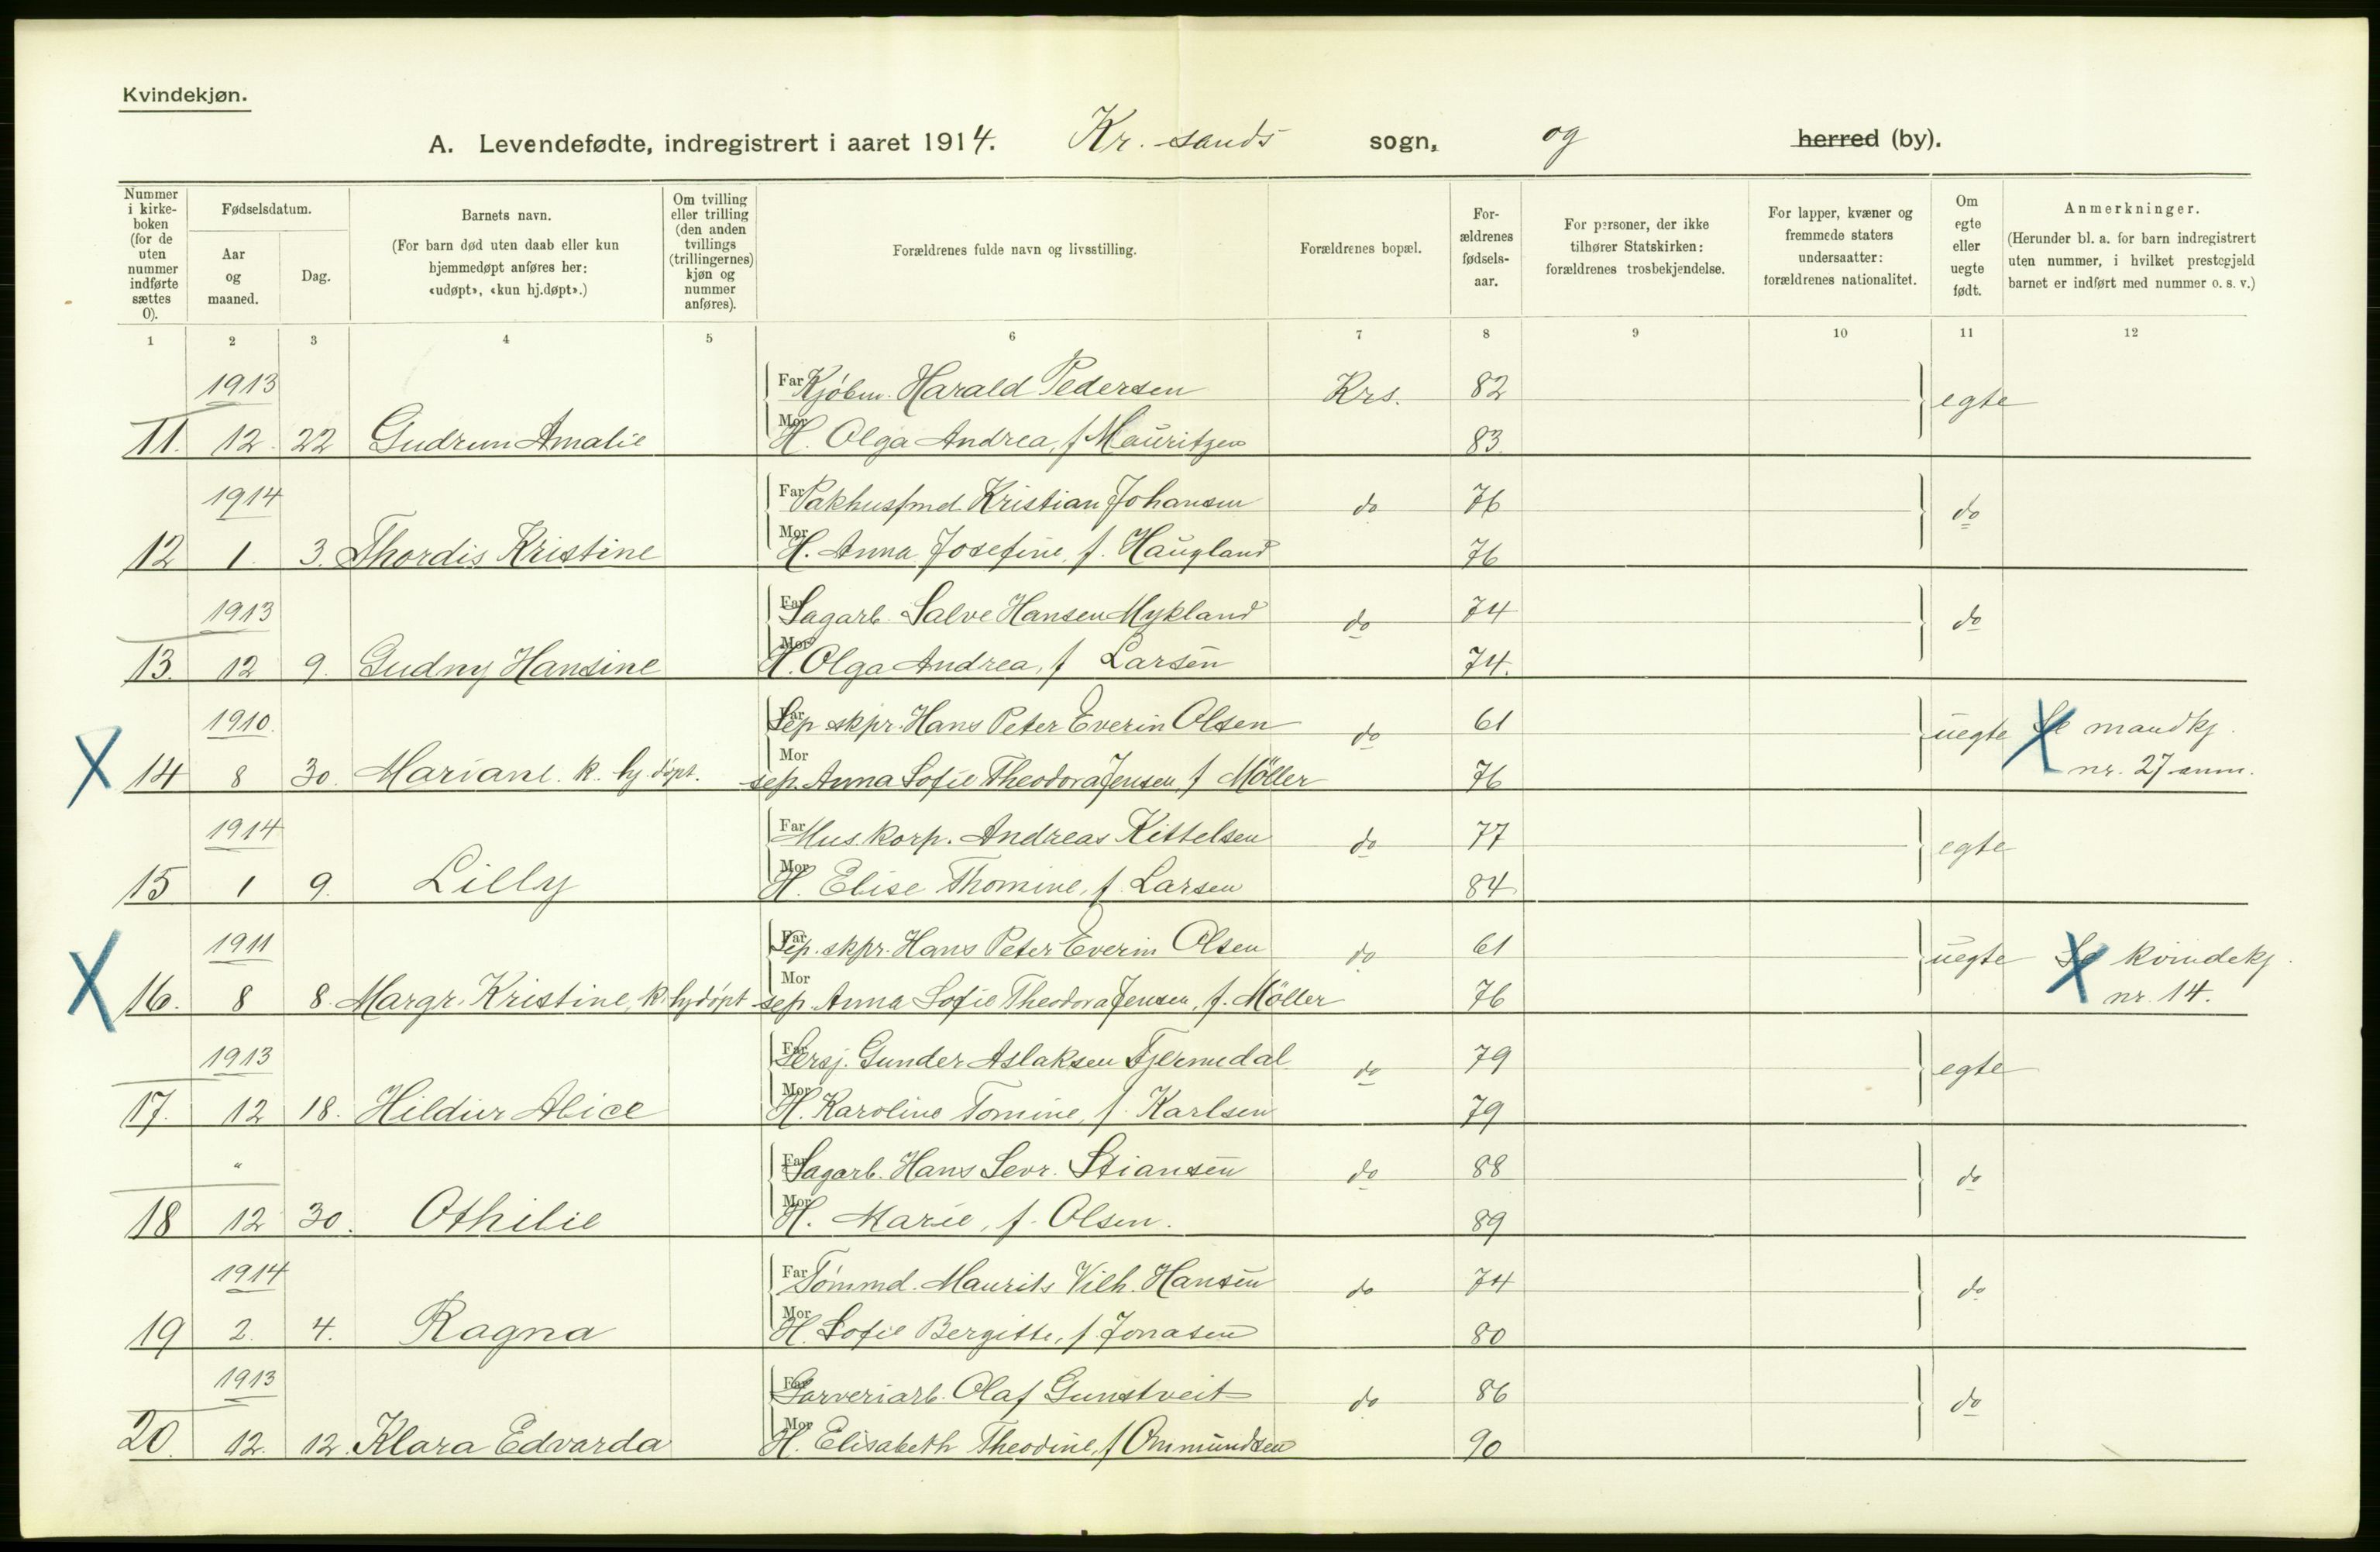 Kvindekjøn.
A. Levendefødte, indregistrert i aaret 1914. Kr. sands sogn, og herred (by).
Nummer i kirke-boken (for de uten nummer indførte sættes 0).
Fødselsdatum.
Aar og maaned.
Dag.
Barnets navn.
(For barn død uten daab eller kun hjemmedøpt anføres her: «udøpt», «kun hj.døpt».)
Om tvilling eller trilling (den anden tvillings (trillingernes) kjøn og nummer anføres).
Forældrenes fulde navn og livsstilling.
Forældrenes bopæl.
For-ældrenes fødsels-aar.
For personer, der ikke tilhører Statskirken: forældrenes trosbekjendelse.
For lapper, kvæner og fremmede staters undersaatter: forældrenes nationalitet.
Om egte eller uegte født.
Anmerkninger.
(Herunder bl. a. for barn indregistrert uten nummer, i hvilket prestegjeld barnet er indført med nummer o. s. v.)
1 2 3 4 5 6 7 8 9 10 11 12
1913 Far Kjøbm. Harald Pedersen Krs. 82 egte
11. 12. 22 Gudrun Amalie Mor H. Olga Andrea, f Mauritzen 83.
1914 Far Pakhusfmd. Kristian Johansen do 76 do
12 1. 3. Thordis Kristine Mor H. Anna Josefine, f. Haugland 76
1913 Far Sagarb. Salve Hansen Mykland do 74 do
13. 12 9. Gudny Hansine Mor H. Olga Andrea, f Larsen 74.
1910. Far Sep. skpr. Hans Peter Everin Olsen do 61 uegte Se mandkj.
X 14 8 30. Mariane. k. hj. døpt. Mor sep. Anna Sofie Theodora Jensen, f Möller 76 nr. 27 anm.
1914 Far Mus. korp. Andreas Kittelsen do 77 egte
15 1 9. Lilly Mor H. Elise Thomine, f. Larsen 84
1911 Far Sep. skpr. Hans Peter Everin Olsen do 61 uegte Se kvindekj.
X 16. 8 8. Margr. Kristine, k. hj døpt Mor sep. Anna Sofie Theodora Jensen, f. Möller 76 nr. 14.
1913 Far Sersj. Gunder Aslaksen Fjermedal do 79 egte
17. 12 18. Hildur Alice Mor H. Karoline Tomine, f. Karlsen 79
" Far Sagarb. Hans Sevr. Stiansen do 88 do
18 12 30. Othilie Mor H. Marie, f. Olsen. 89
1914 Far Tømmd. Maurits Vilh. Hansen do 74 do
19 2. 4. Ragna Mor H. Sofie Bergitte, f. Jonasen 80
1913 Far Garveriarb. Olaf Gunstveit do 86 do
20. 12. 12. Klara Edvarda Mor H. Elisabeth Theodine, f Ommundsen 90